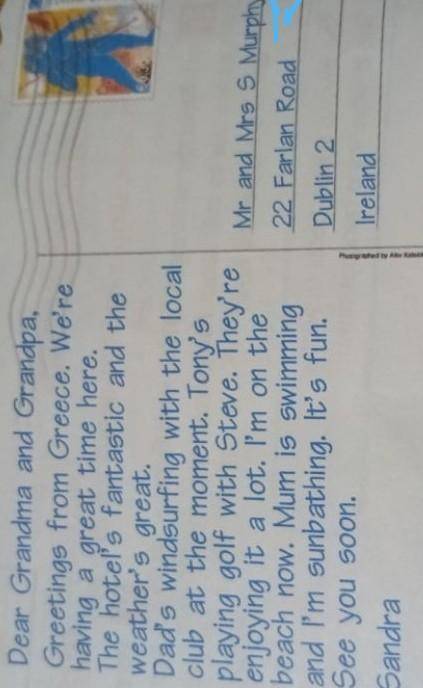 Dear Grandma and Grandpa,
Greetings from Greece. We're
having a great time here.
The hotel's fantastic and the
weather's great.
Dad's windsurfing with the local
club at the moment. Tony's
playing golf with Steve. They're
enjoying it a lot. I'm on the
beach now. Mum is swimming
and I'm sunbathing. It's fun.
See you soon.
Sandra
Mr and Mrs S Murphy
22 Farlan Road
Dublin 2
Ireland
Photographed by Alex